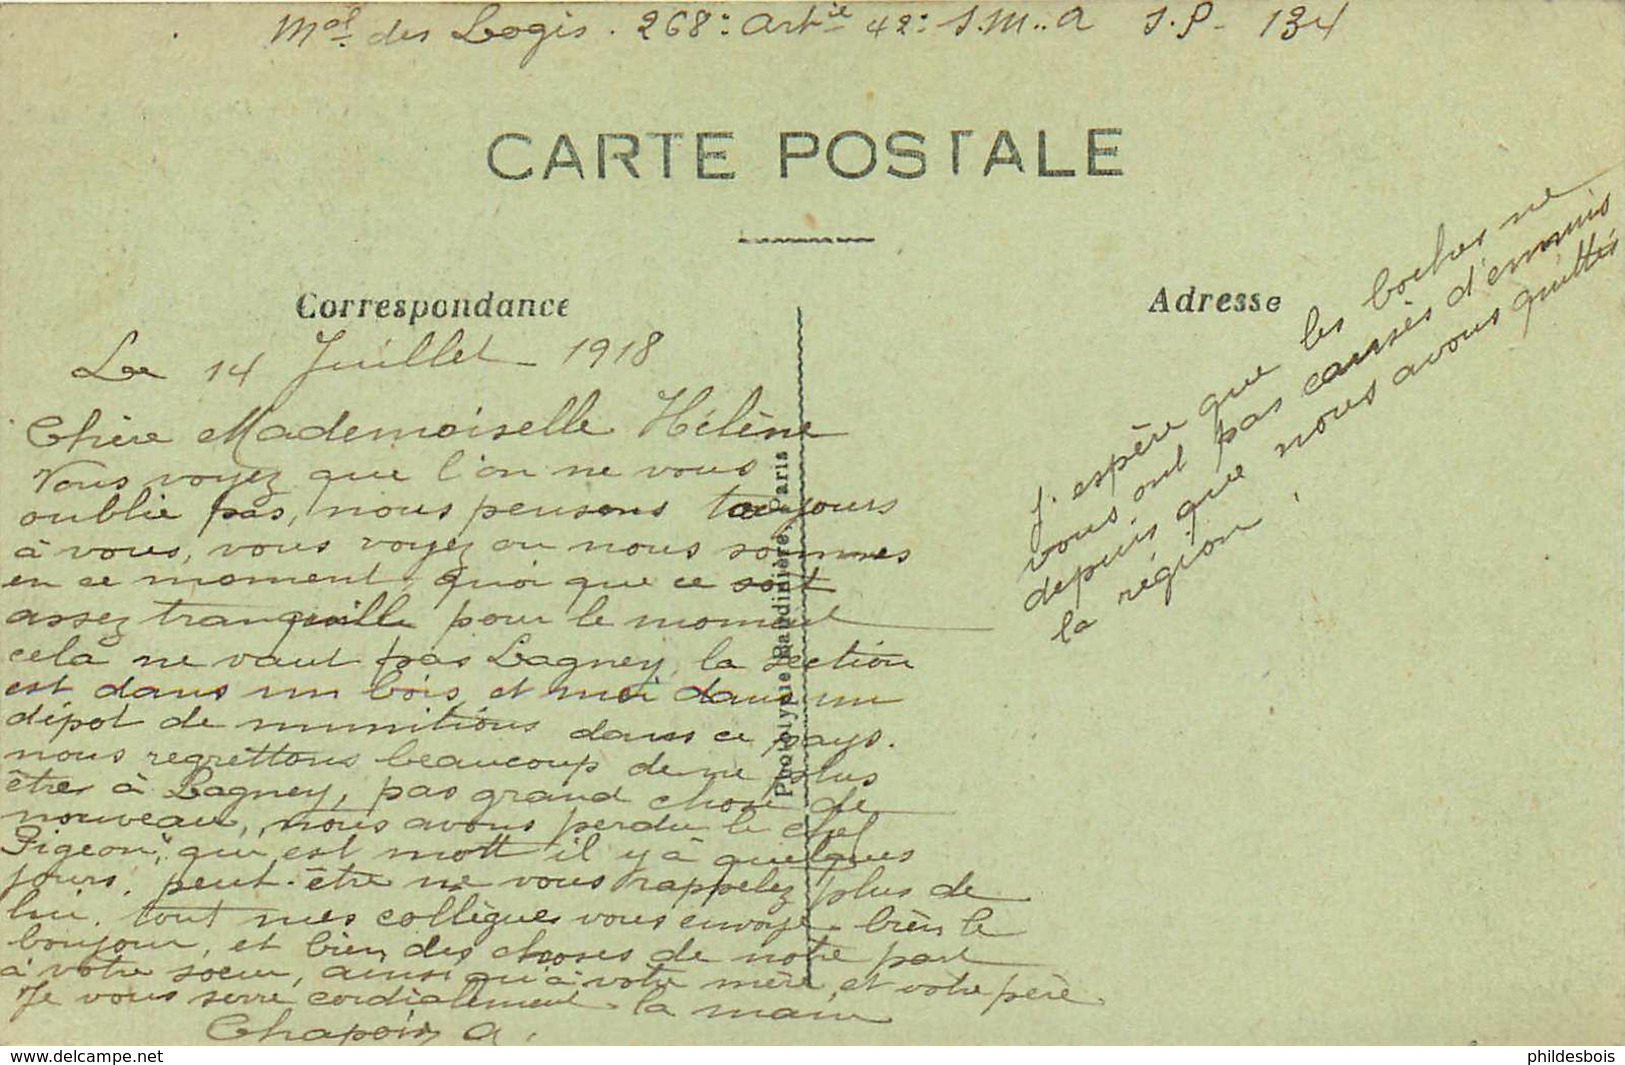 Mal des Logis. 268e Artie 42e S.M..A S.P- 134
CARTE POSTALE
Correspondance
Adresse
Le 14 Juillet 1918
Chère Mademoiselle Hélène
Vous voyez que l'on ne vous
oublie pas, nous pensons toujours
à vous, vous voyez ou nous sommes
en ce moment, quoi que ce soit
assez tranquille pour le moment
cela ne vaut pas Lagney, la section
est dans un bois, et moi dans un
dépot de munitions dans ce pays.
nous regrettons beaucoup de ne plus
être à Lagney, pas grand chose de
nouveau, nous avons perdu le chef
Pigeon, qui est mort il y à quelques
jours, peut-être ne vous rappelez plus de
lui. tout mes collègues vous envoye bien le
bonjour, et bien des choses de notre part
à votre soeur, ainsi qu'à votre mère, et votre père.
Je vous serre cordialement la main
Chapoix A.
J'espère que les boches ne
vous ont pas causès d'ennuis
depuis que nous avons quittés
la région.
Phototypie Baudinière, Paris
phildesbois
© delcampe.net